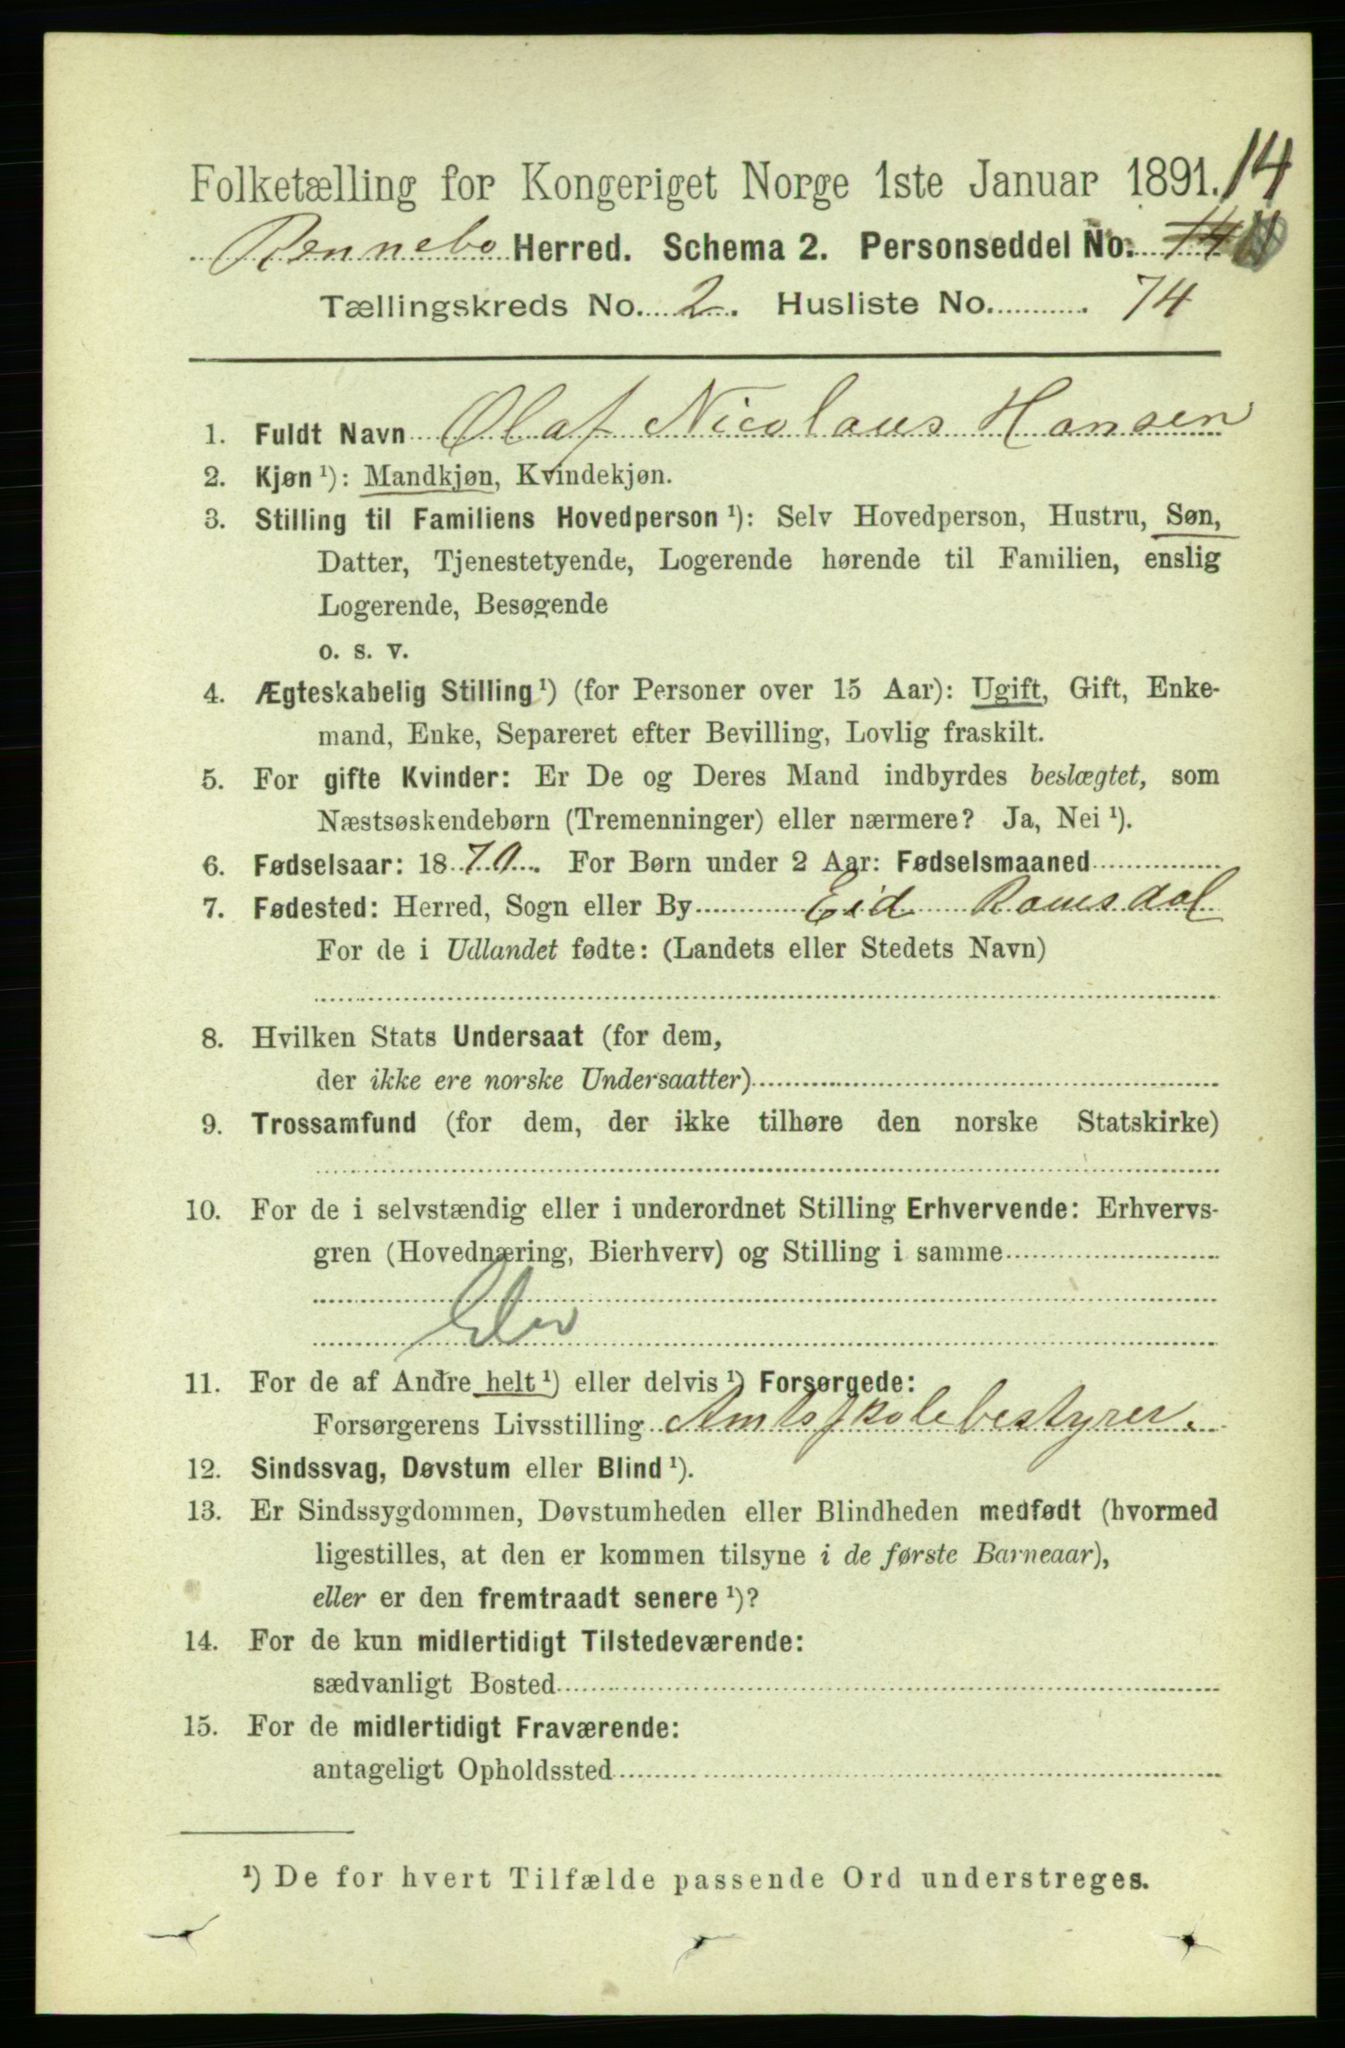 Folketælling for Kongeriget Norge 1ste Januar 1891. 14
Rennebo Herred. Schema 2. Personseddel No.
Tællingskreds No. 2. Husliste No. 74
1. Fuldt Navn Olaf Nicolaus Hansen
2. Kjøn ¹): Mandkjøn, Kvindekjøn.
3. Stilling til Familiens Hovedperson ¹): Selv Hovedperson, Hustru, Søn,
Datter, Tjenestetyende, Logerende hørende til Familien, enslig
Logerende, Besøgende
o. s. v.
4. Ægteskabelig Stilling ¹) (for Personer over 15 Aar): Ugift, Gift, Enke-
mand, Enke, Separeret efter Bevilling, Lovlig fraskilt.
5. For gifte Kvinder: Er De og Deres Mand indbyrdes beslægtet, som
Næstsøskendebørn (Tremenninger) eller nærmere? Ja, Nei ¹).
6. Fødselsaar: 1870. For Børn under 2 Aar: Fødselsmaaned
7. Fødested: Herred, Sogn eller By Eid Romsdal
For de i Udlandet fødte: (Landets eller Stedets Navn)
8. Hvilken Stats Undersaat (for dem,
der ikke ere norske Undersaatter)
9. Trossamfund (for dem, der ikke tilhøre den norske Statskirke)
10. For de i selvstændig eller i underordnet Stilling Erhvervende: Erhvervs-
gren (Hovednæring, Bierhverv) og Stilling i samme
Elev
11. For de af Andre helt ¹) eller delvis ¹) Forsørgede:
Forsørgerens Livsstilling Amtsskolebestyrer.
12. Sindssvag, Døvstum eller Blind ¹).
13. Er Sindssygdommen, Døvstumheden eller Blindheden medfødt (hvormed
ligestilles, at den er kommen tilsyne i de første Barneaar),
eller er den fremtraadt senere ¹)?
14. For de kun midlertidigt Tilstedeværende:
sædvanligt Bosted
15. For de midlertidigt Fraværende:
antageligt Opholdssted
¹) De for hvert Tilfælde passende Ord understreges.